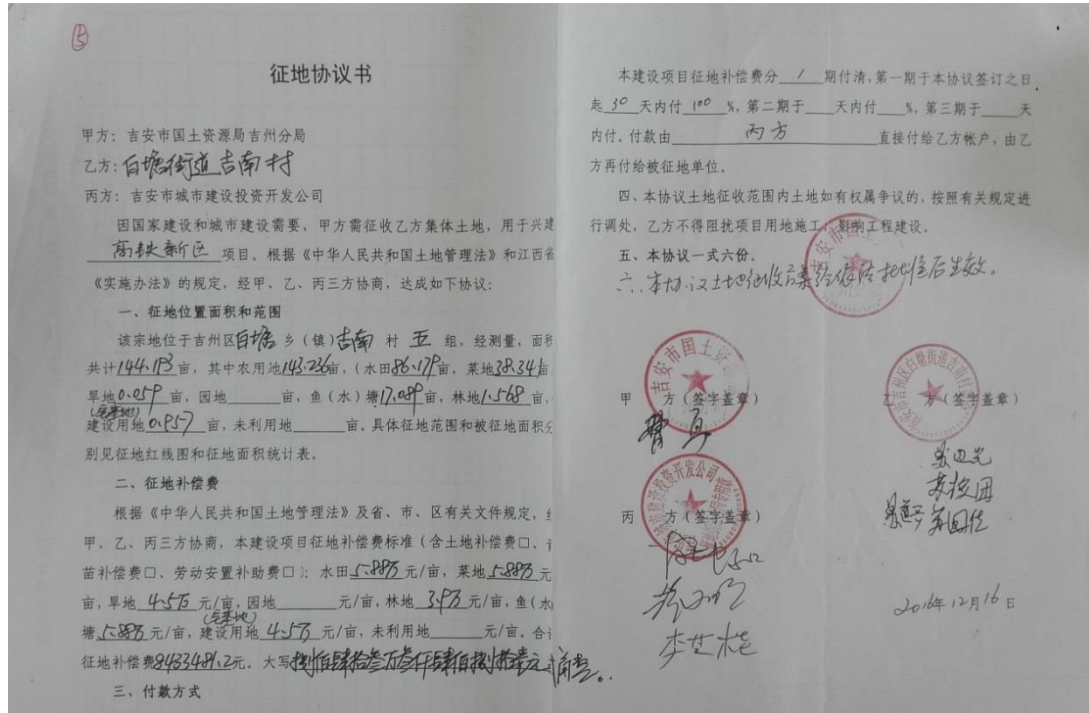 15
征地协议书
甲方：吉安市国土资源局吉州分局
乙方：白塘街道吉南村
丙方：吉安市城市建设投资开发公司
因国家建设和城市建设需要，甲方需征收乙方集体土地，用于兴建
高铁新区 项目。根据《中华人民共和国土地管理法》和江西省
《实施办法》的规定，经甲、乙、丙三方协商，达成如下协议：
一、征地位置面积和范围
该宗地位于吉州区白塘乡（镇）吉南 村 五 组，经测量，面积
共计144.193亩，其中农用地143.236亩，（水田86.179亩，菜地38.341亩
旱地0.059亩，园地____亩，鱼（水）塘17.089亩，林地1.568亩，
（宅基地）
建设用地0.957亩，未利用地____亩。具体征地范围和被征地面积分
别见征地红线图和征地面积统计表。
二、征地补偿费
根据《中华人民共和国土地管理法》及省、市、区有关文件规定，
甲、乙、丙三方协商，本建设项目征地补偿费标准（含土地补偿费□、
苗补偿费□、劳动安置补助费□）：水田5.88万元/亩，菜地5.88万元
亩，旱地4.5万元/亩，园地____元/亩，林地3.9万元/亩，鱼（水
（宅基地）
塘5.88万元/亩，建设用地4.5万元/亩，未利用地____元/亩。合计
征地补偿费8433481.2元。大写捌佰肆拾叁万叁仟肆佰捌拾壹元
三、付款方式
本建设项目征地补偿费分 1 期付清，第一期于本协议签订之日
起 30 天内付 100 %，第二期于____天内付____%，第三期于____天
内付。付款由 丙方 直接付给乙方帐户，由乙
方再付给被征地单位。
四、本协议土地征收范围内土地如有权属争议的，按照有关规定进
行调处，乙方不得阻扰项目用地施工，影响工程建设。
五、本协议一式六份。
六、本协议土地征收方案经依法批准后生效。
甲 方（签字盖章）
吉安市国土资
乙 方（签字盖章）
吉安市吉州区白塘街道吉南村
丙 方（签字盖章）
建设投资开发公司
2016年12月16日